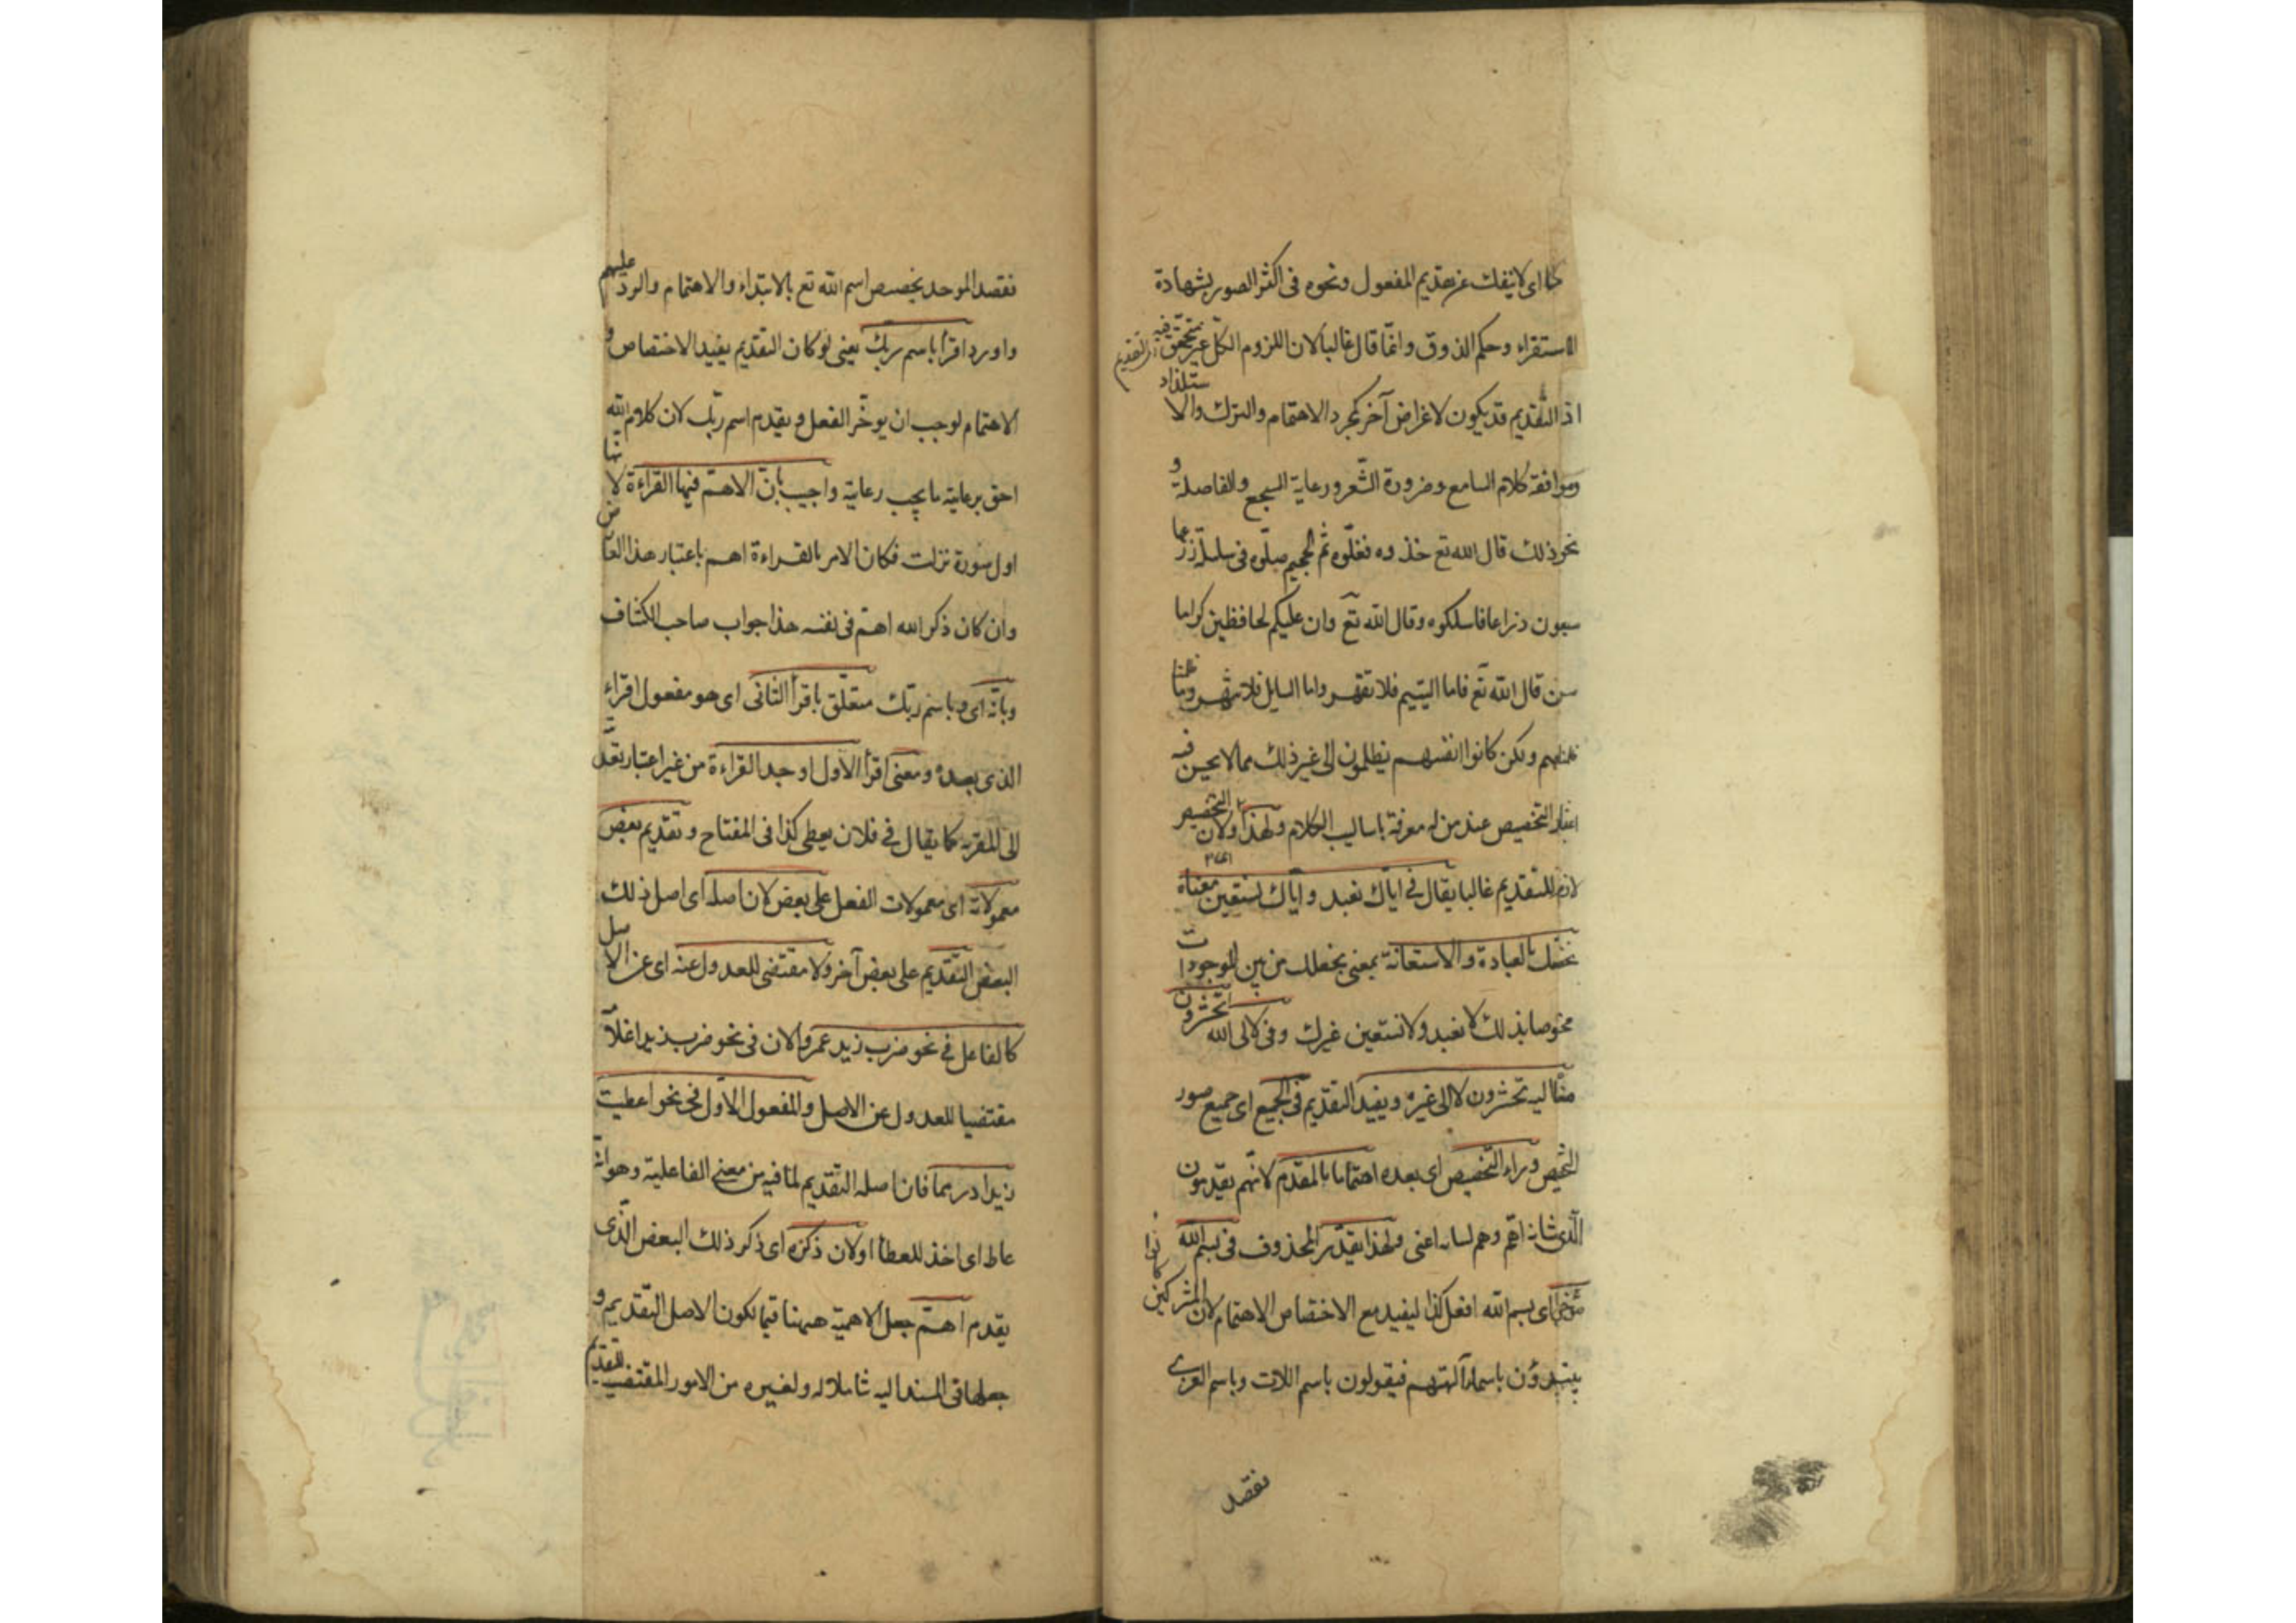 كما اى لا ينفك عن تقديم المفعول ونحوه فى اكثر الصور بشهادة
الاستقراء وحكم الذوق وانما قال غالبا لان اللزوم الكلى غير متحقق فيه
اذ التقديم قد يكون لاغراض آخر كمجرد الاهتمام والتبرك والاستلذاذ
وموافقة كلام السامع وضرورة الشعر ورعاية السجع والفاصلة و
نحو ذلك قال الله تع خذوه فغلوه ثم الجحيم صلوه فى سلسلة ذرعها
سبعون ذراعا فاسلكوه وقال الله تع وان عليكم لحافظين كراما
قال الله تع فاما اليتيم فلا تقهر واما السايل فلا تنهر وما
ظلمناهم ولكن كانوا انفسهم يظلمون الى غير ذلك مما لا يحسن فيه
اعتبار التخصيص عند من له معرفة باساليب الكلام ولهذا اى ولان التخصيص
لازم للتقديم غالبا يقال فى اياك نعبد واياك نستعين معناه
نخصك بالعبادة والاستعانة بمعنى نجعلك من بين الموجودات
مخصوصا بذلك لا نعبد ولا نستعين غيرك وفى لالى الله تحشرون
معناه اليه تحشرون لا الى غيره ويفيد التقديم فى الجميع اى جميع صور
التخصيص وراء التخصيص اى بعده اهتماما بالمقدم لانهم يقدمون
الذى شانه اهم وهم ببيانه اعنى ولهذا يقدر المحذوف فى بسم الله
مؤخرا اى بسم الله افعل كذا ليفيد مع الاختصاص الاهتمام لان المشركين كانوا
يبتدؤن باسماء آلهتهم فيقولون باسم اللات وباسم العزى
فقصد
فقصد الموحد تخصيص اسم الله تع بالابتداء والاهتمام والرد عليهم
واورد اقرأ باسم ربك يعنى لو كان التقديم يفيد الاختصاص و
الاهتمام لوجب ان يوخر الفعل ويقدم اسم ربك لان كلام الله
احق برعاية ما يجب رعايته واجيب بان الاهم فيها القراءة لانها
اول سورة نزلت فكان الامر بالقراءة اهم باعتبار هذا العارض
وان كان ذكر الله اهم فى نفسه هذا جواب صاحب الكشاف
وبانه اى باسم ربك متعلق باقرأ الثانى اى هو مفعول اقراء
الذى بعده ومعنى اقرأ الاول اوجد القراءة من غير اعتبار تعديته
الى المقربه كما يقال فى فلان يعطى كذا فى المفتاح وتقديم بعض
معمولاته اى معمولات الفعل على بعض لان اصله اى اصل ذلك
البعض التقديم على بعض آخر ولا مقتضى للعدول عنه اى عن الاصل
كالفاعل فى نحو ضرب زيد عمروا لان فى نحو ضرب زيدا غلامه
مقتضيا للعدول عن الاصل والمفعول الاول فى نحو اعطيت
زيدا درهما فان اصله التقديم لما فيه من معنى الفاعلية وهو انه
عاط اى اخذ للعطا او لان ذكره اى ذكر ذلك البعض الذى
يقدم اهم جعل الاهمية ههنا قيما لكون الاصل التقديم و
جعلها فى المسند اليه شاملا له ولغيره من الامور المقتضيه للتقديم